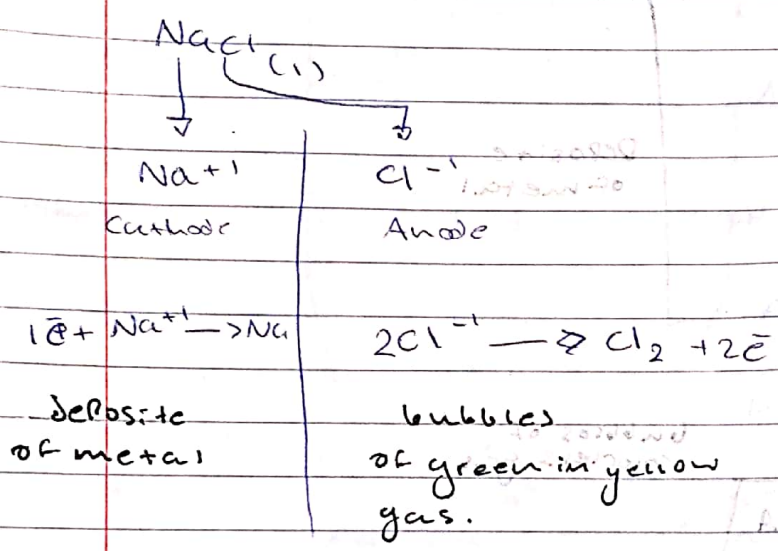 NaCl (l)
Na+1
Cl-1
Cathode
Anode
1ē + Na+1 —> Na
2Cl-1 —> Cl2 + 2ē
deposite
of metal
bubbles
of green in yellow
gas.